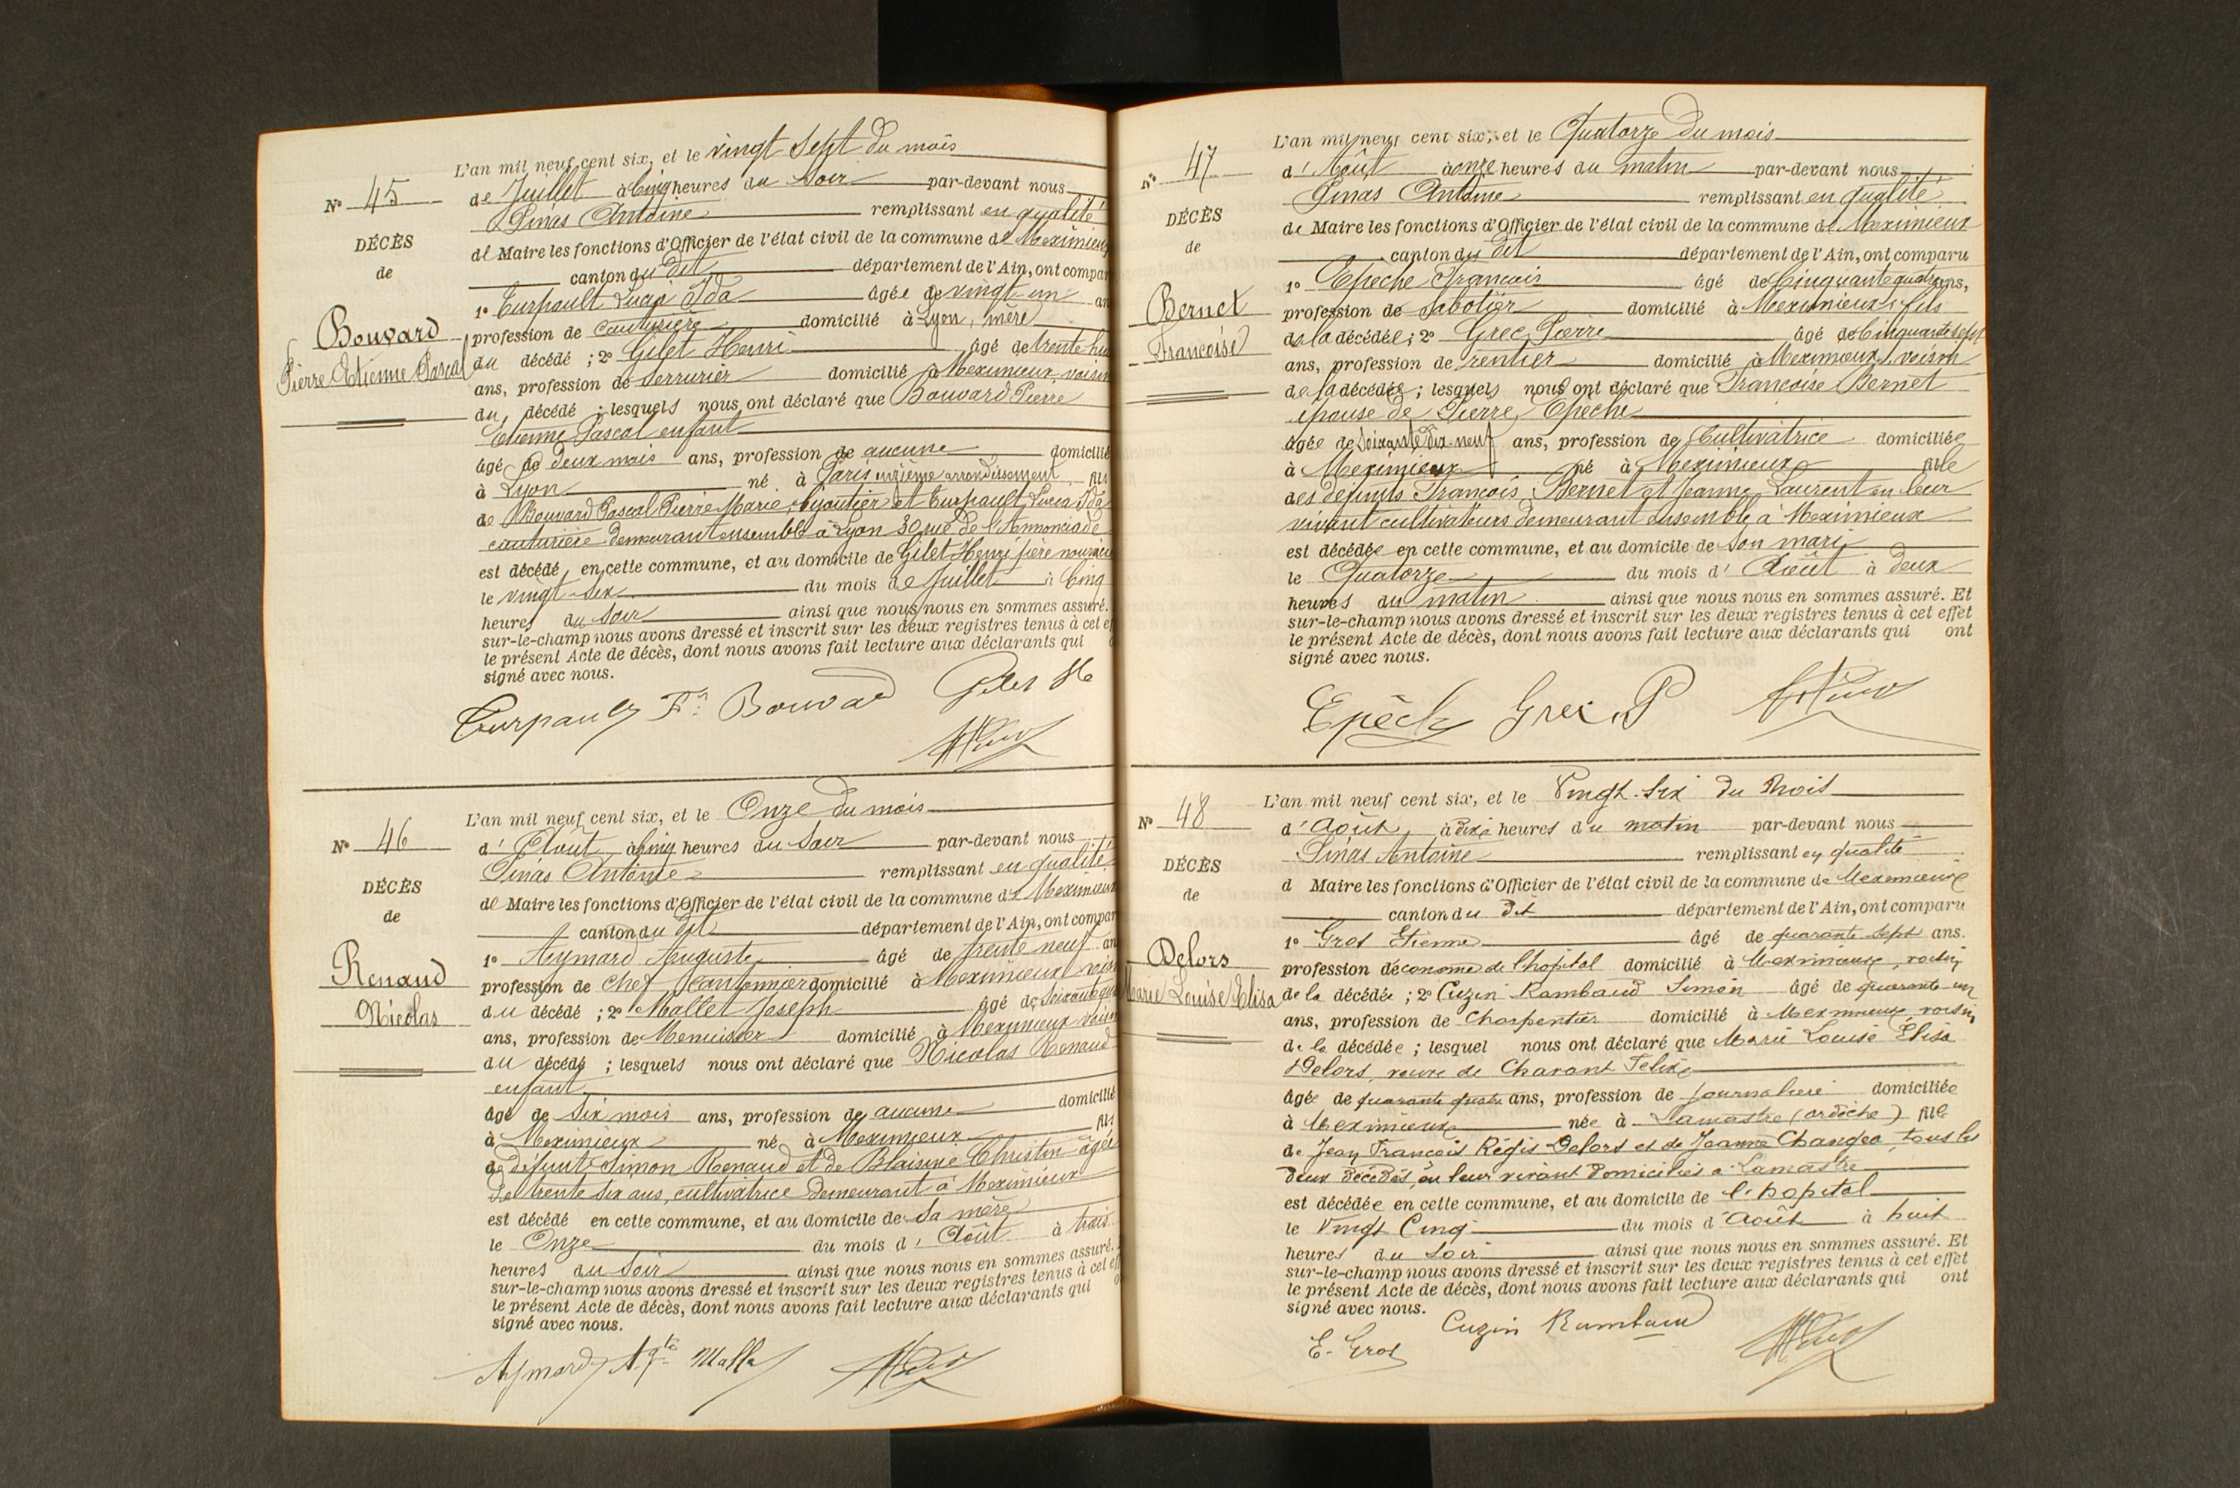 N° 45
DÉCÈS
de
Bouvard
Pierre Etienne Pascal
L'an mil neuf cent six, et le vingt sept du mois
de Juillet à cinq heures du soir par-devant nous
Pinas Antoine remplissant en qualité
de Maire les fonctions d'Officier de l'état civil de la commune de Meximieux
canton du dit département de l'Ain, ont compar
1° Turpault Lucia Ida âgée de vingt-un an
profession de couturière domicilié à Lyon, mère
du décédé ; 2° Gilet Henri âgé de trente hui
ans, profession de serrurier domicilié à Meximieux, voisin
du décédé ; lesquels nous ont déclaré que Bouvard Pierre
Etienne Pascal enfant
âgé de deux mois ans, profession de aucune domicilié
à Lyon né à Paris onzième arrondissement fils
de Bouvard Pascal Pierre Marie, bijoutier et Turpault Lucia Ida
couturière demeurant ensemble à Lyon 30 rue de l'Annonciade
est décédé en cette commune, et au domicile de Gilet Henri père nourricie
le vingt-six du mois de Juillet à cinq
heures du soir ainsi que nous nous en sommes assuré.
sur-le-champ nous avons dressé et inscrit sur les deux registres tenus à cet ef
le présent Acte de décès, dont nous avons fait lecture aux déclarants qui
signé avec nous.
Turpault Fe Bouvard Gilet He
N° 46
DÉCÈS
de
Renaud
Nicolas
L'an mil neuf cent six, et le Onze du mois
d'Août à cinq heures du soir par-devant nous
Pinas Antoine remplissant en qualité
de Maire les fonctions d'Officier de l'état civil de la commune de Meximieux
canton du dit département de l'Ain, ont compar
1° Aymard Auguste âgé de trente neuf an
profession de chef cantonnier domicilié à Meximieux voisin
du décédé ; 2° Mallet Joseph âgé de soixante
ans, profession de Menuisier domicilié à Meximieux voisin
du décédé ; lesquels nous ont déclaré que Nicolas Renaud
enfant
âgé de six mois ans, profession de aucune domicilié
à Meximieux né à Meximieux fils
de défunt Simon Renaud et de Blaisine Christin âgée
de trente six ans, cultivatrice demeurant à Meximieux
est décédé en cette commune, et au domicile de sa mère
le Onze du mois d'Août à trois
heures du soir ainsi que nous nous en sommes assuré.
sur-le-champ nous avons dressé et inscrit sur les deux registres tenus à cet eff
le présent Acte de décès, dont nous avons fait lecture aux déclarants qui
signé avec nous.
Aymard Agte Mallet
N° 47
DÉCÈS
de
Bernet
Françoise
L'an mil neuf cent six, et le Quatorze du mois
d'Août à onze heures du matin par-devant nous
Pinas Antoine remplissant en qualité
de Maire les fonctions d'Officier de l'état civil de la commune de Meximieux
canton du dit département de l'Ain, ont comparu
1° Epeche François âgé de Cinquante quatre ans,
profession de sabotier domicilié à Meximieux, fils
de la décédée ; 2° Grec Pierre âgé de Cinquante sept
ans, profession de rentier domicilié à Meximieux, voisin
de la décédée ; lesquels nous ont déclaré que Françoise Bernet
épouse de Pierre Epeche
âgée de soixante dix-neuf ans, profession de Cultivatrice domiciliée
à Meximieux né à Meximieux fille
des défunts François Bernet et Jeanne Laurent en leur
vivant cultivateurs demeurant ensemble à Meximieux
est décédée en cette commune, et au domicile de son mari
le Quatorze du mois d'Août à deux
heures du matin ainsi que nous nous en sommes assuré. Et
sur-le-champ nous avons dressé et inscrit sur les deux registres tenus à cet effet
le présent Acte de décès, dont nous avons fait lecture aux déclarants qui ont
signé avec nous.
Epêche Grec P
N° 48
DÉCÈS
de
Delors
Marie Louise Elisa
L'an mil neuf cent six, et le Vingt-six du mois
d'Août, à dix heures du matin par-devant nous
Pinas Antoine remplissant en qualité
d Maire les fonctions d'Officier de l'état civil de la commune de Meximieux
canton du dit département de l'Ain, ont comparu
1° Gros Etienne âgé de quarante sept ans.
profession d'économe de l'hopital domicilié à Meximieux, voisin
de la décédée ; 2° Cuzin Rambaud Simon âgé de quarante un
ans, profession de Charpentier domicilié à Meximieux, voisin
de la décédée ; lesquel nous ont déclaré que Marie Louise Élisa
Delors, veuve de Charant Felix
âgée de quarante quatre ans, profession de journalière domiciliée
à Meximieux née à Lamastre (ardèche) fille
de Jean François Régis Delors et de Jeanne Changea, tous les
deux décédés, en leur vivant domiciliés à Lamastre
est décédée en cette commune, et au domicile de l'hopital
le Vingt Cinq du mois d'Août à huit
heures du soir ainsi que nous nous en sommes assuré. Et
sur-le-champ nous avons dressé et inscrit sur les deux registres tenus à cet effet
le présent Acte de décès, dont nous avons fait lecture aux déclarants qui ont
signé avec nous.
E. Gros Cuzin Rambaud